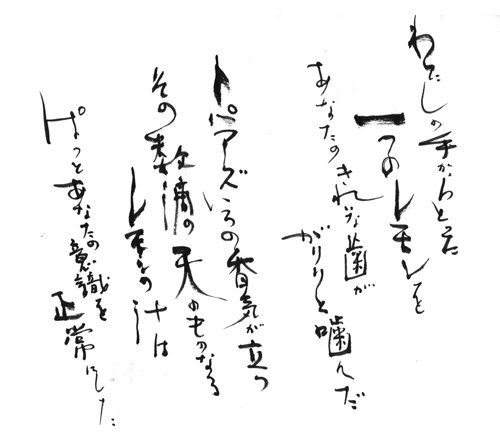 わたしの手からとった
一つのレモンを
あなたのきれいな歯が
がりりと噛んだ
トパアズいろの香気が立つ
その数滴の天のものなる
レモンの汁は
ぱっとあなたの意識を
正常にした